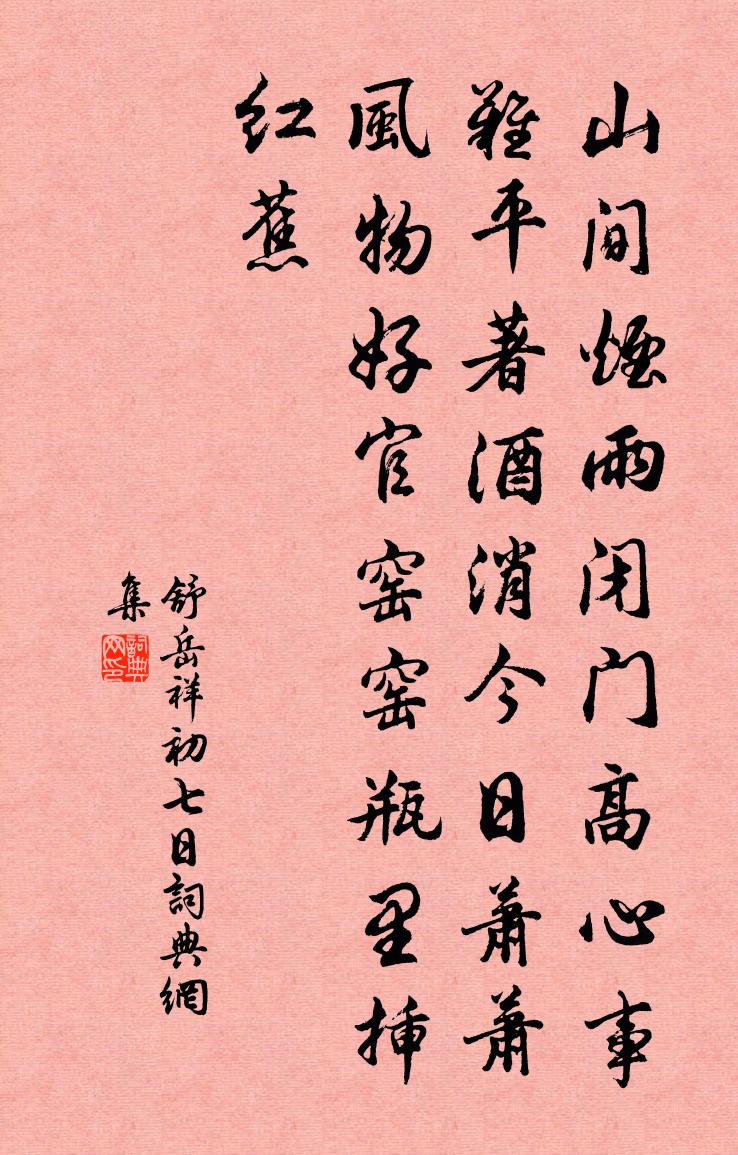 山間煙雨闭门高心事
難平著酒消今日蕭蕭
風物好官窑窑瓶里挿
红蕉
舒岳祥初七日詞典網
集
詞典网印